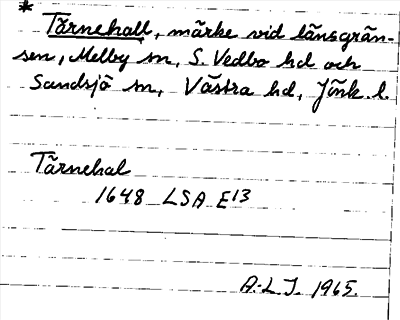 * Tärnehall, märke vid länsgrän-
sen, Melby sn, S. Vedbo hd och
Sandsjö sn, Västra hd, Jönk. l.
Tärnehal
1648 LSA E13
A.-L.J. 1965.